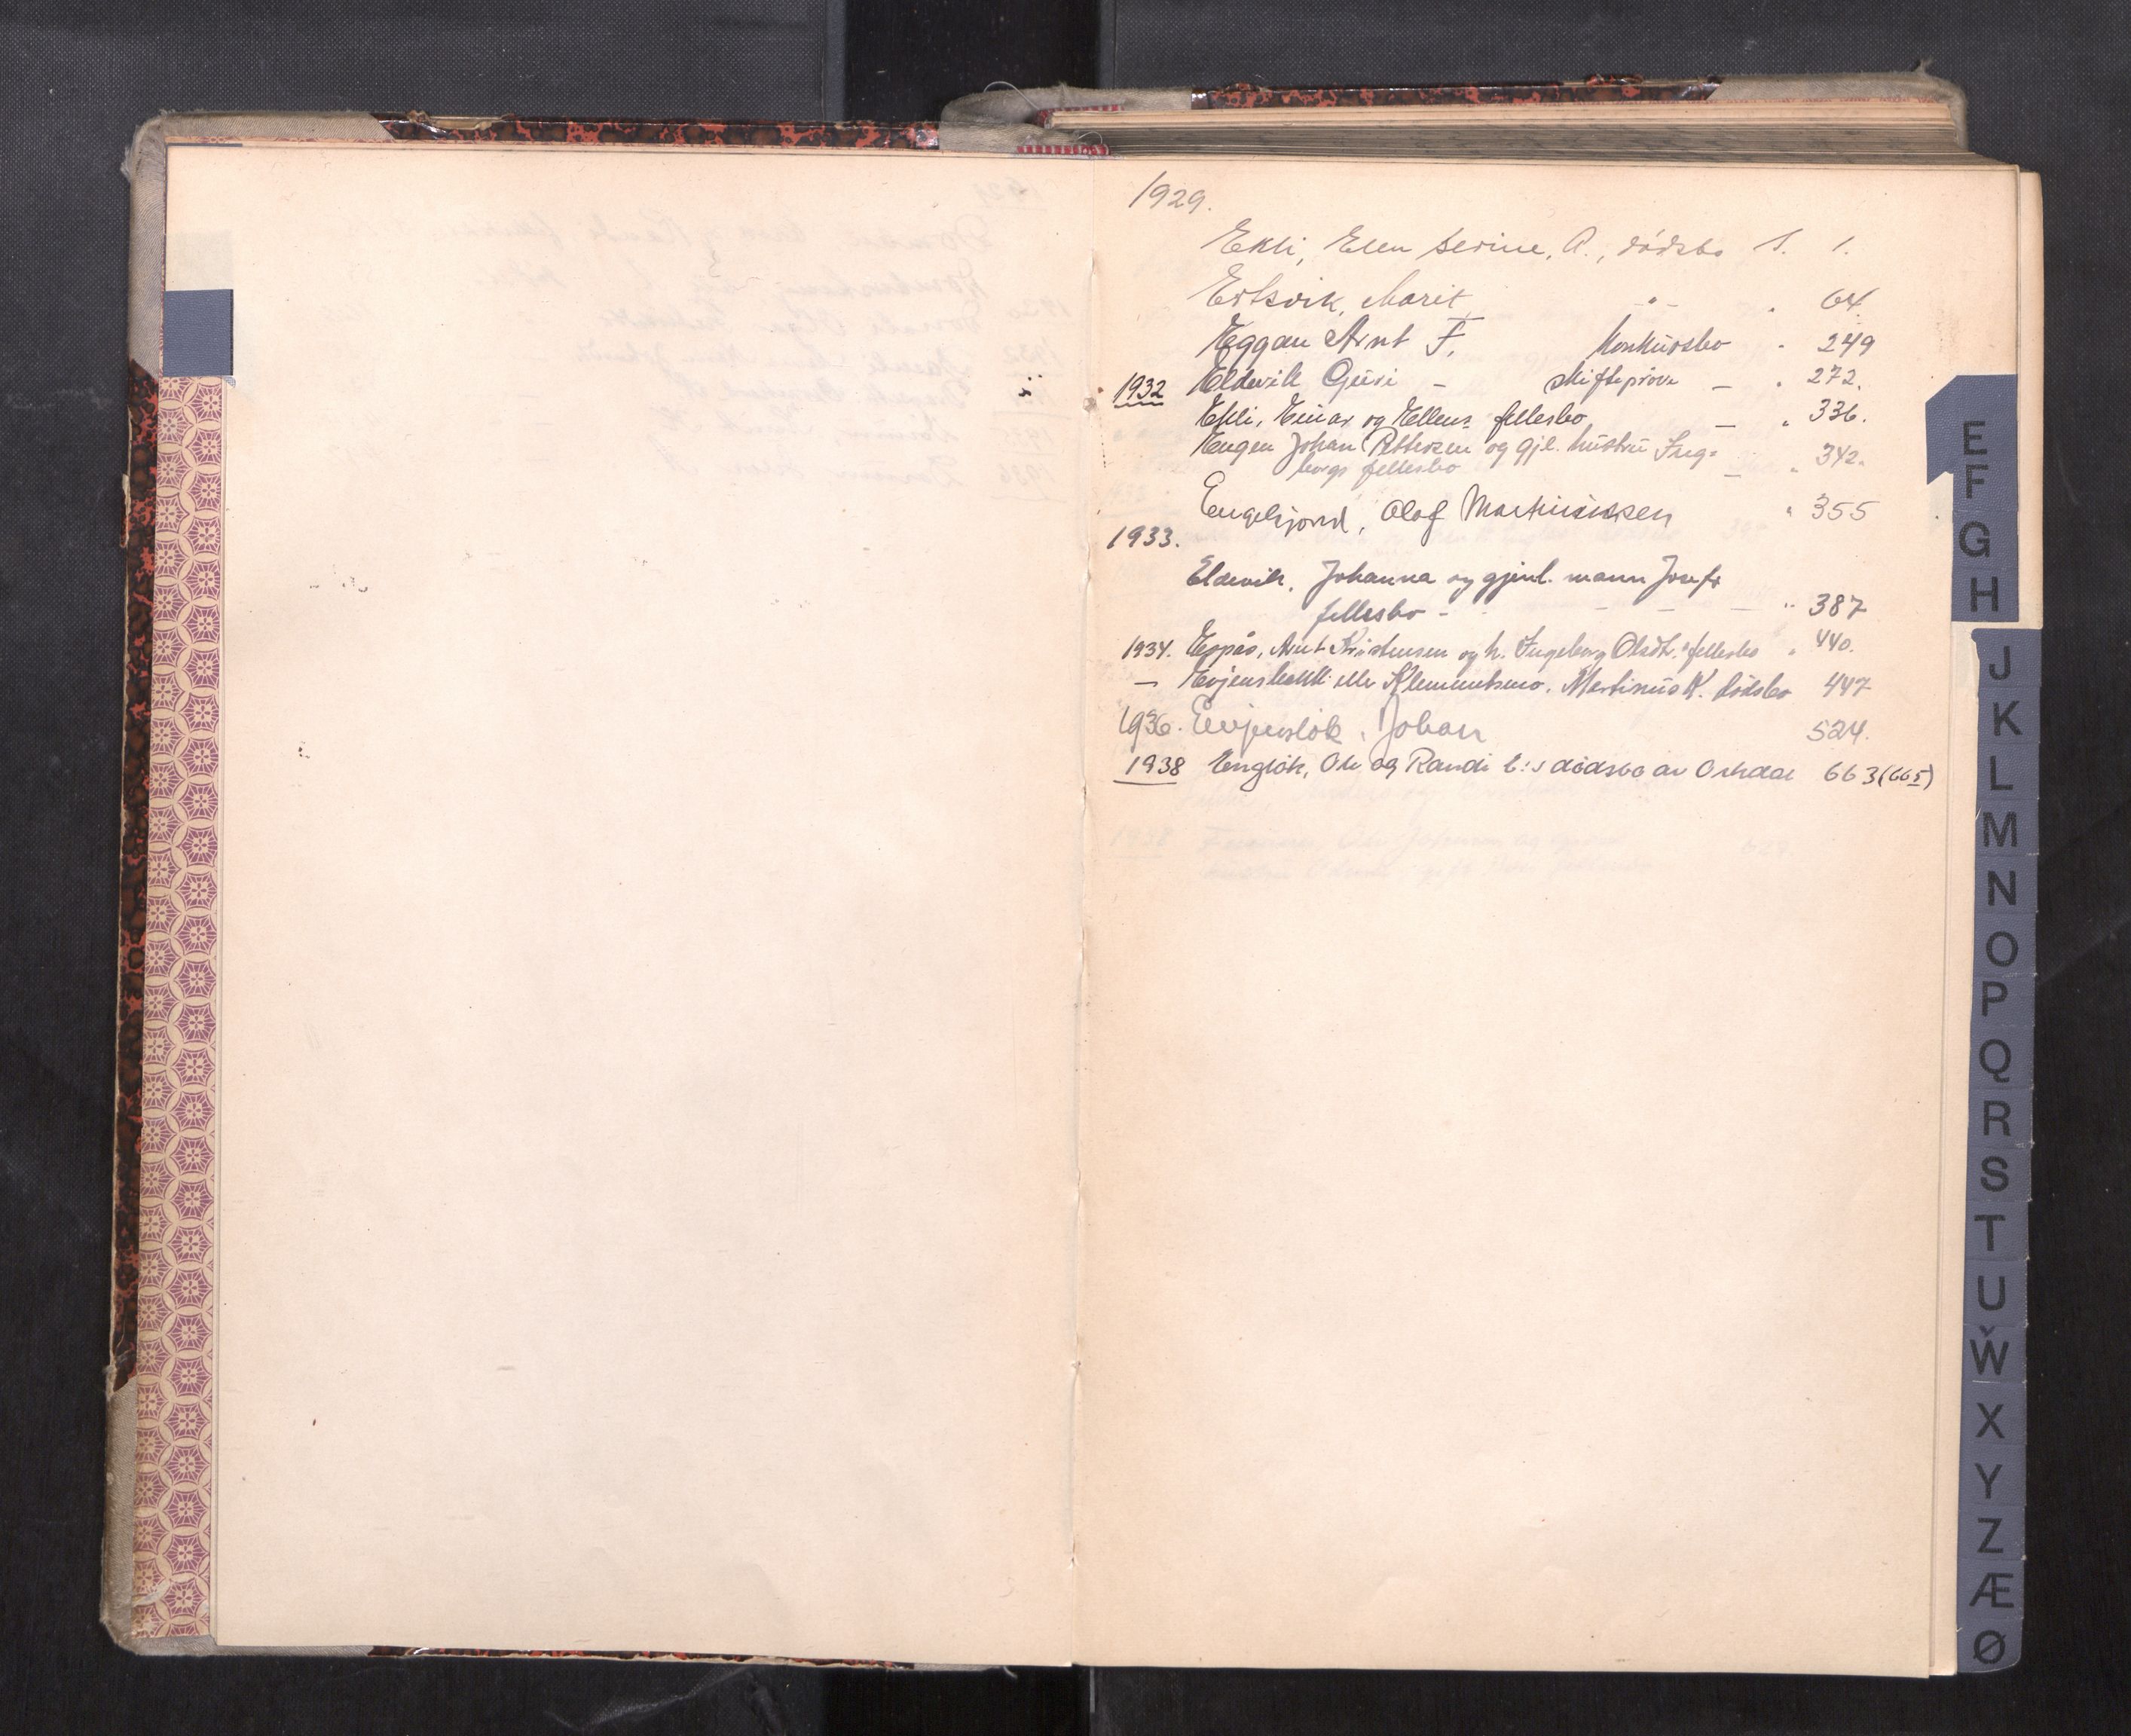 1929.
Ekli, Elen Serine, A., dødsbo S. 1.
Ertsvik, Marit - " - " 64.
Eggan Arnt F. Konkursbo " 249
1932 Eldevik Guri - skifteprove - " 272.
Ekli, Einar og Ellens fellesbo - " 336.
Engen Johan Pettersen og gjl. hustru Inge-
borgs fellesbo - " 342.
Engelsjord, Olaf Martinussen " 355
1933.
Eldevik, Johanna og gjenl. mann Josefs
fellesbo - - - - " 387
1934. Espås, Arnt Kristensen og h. Ingeborg Olsdtr.s fellesbo " 440.
— Evjensbakk eller Klemmetsmo, Martinus K. dødsbo 447
1936. Evjensløk, Johan 524.
1938 Engløk, Ole og Randi b:s dødsbo av Orkdal 663 (665)
E
F
G
H
J
K
L
M
N
O
P
Q
R
S
T
U
V
W
X
Y
Z
Æ
Ø